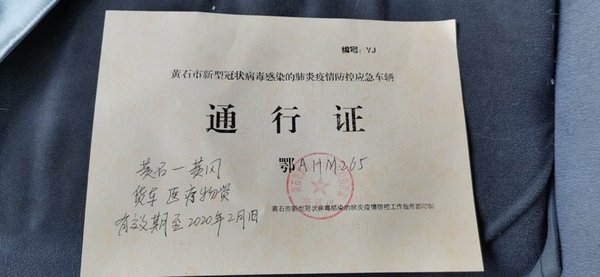 编号: YJ
黄石市新型冠状病毒感染的肺炎疫情防控应急车辆
通行证
黄石一黄冈
鄂AHM265
货车 医疗物资
有效期至2020年2月
黄石市新型冠状病毒感染的肺炎疫情防控工作指挥部印制